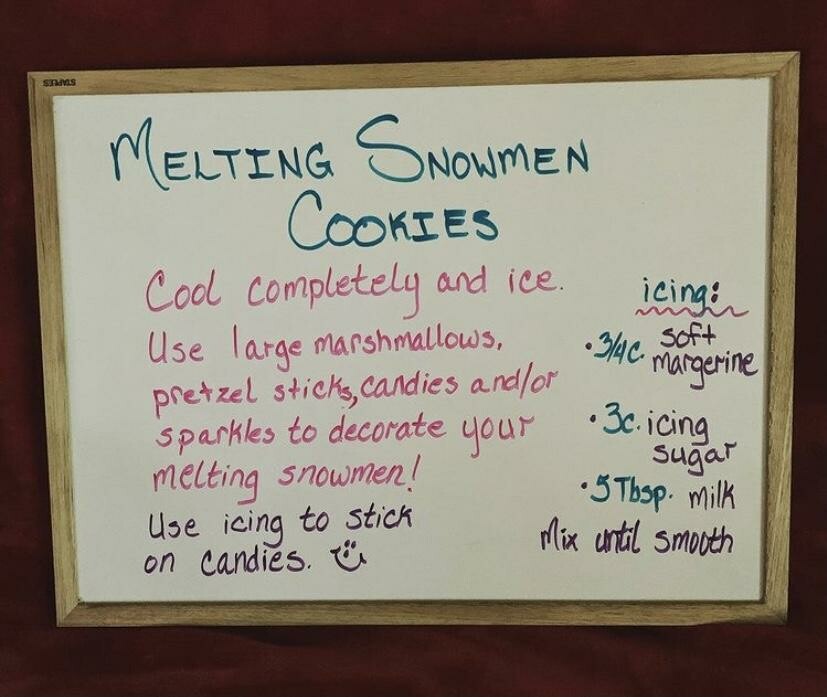 STAPLES
MELTING SNOWMEN
COOKIES
Cool completely and ice.
Use large marshmallows,
pretzel sticks, candies and/or
sparkles to decorate your
melting snowmen!
Use icing to stick
on candies.
icing:
• 3/4c. soft
margerine
• 3c. icing
sugar
• 5 Tbsp. milk
Mix until smooth